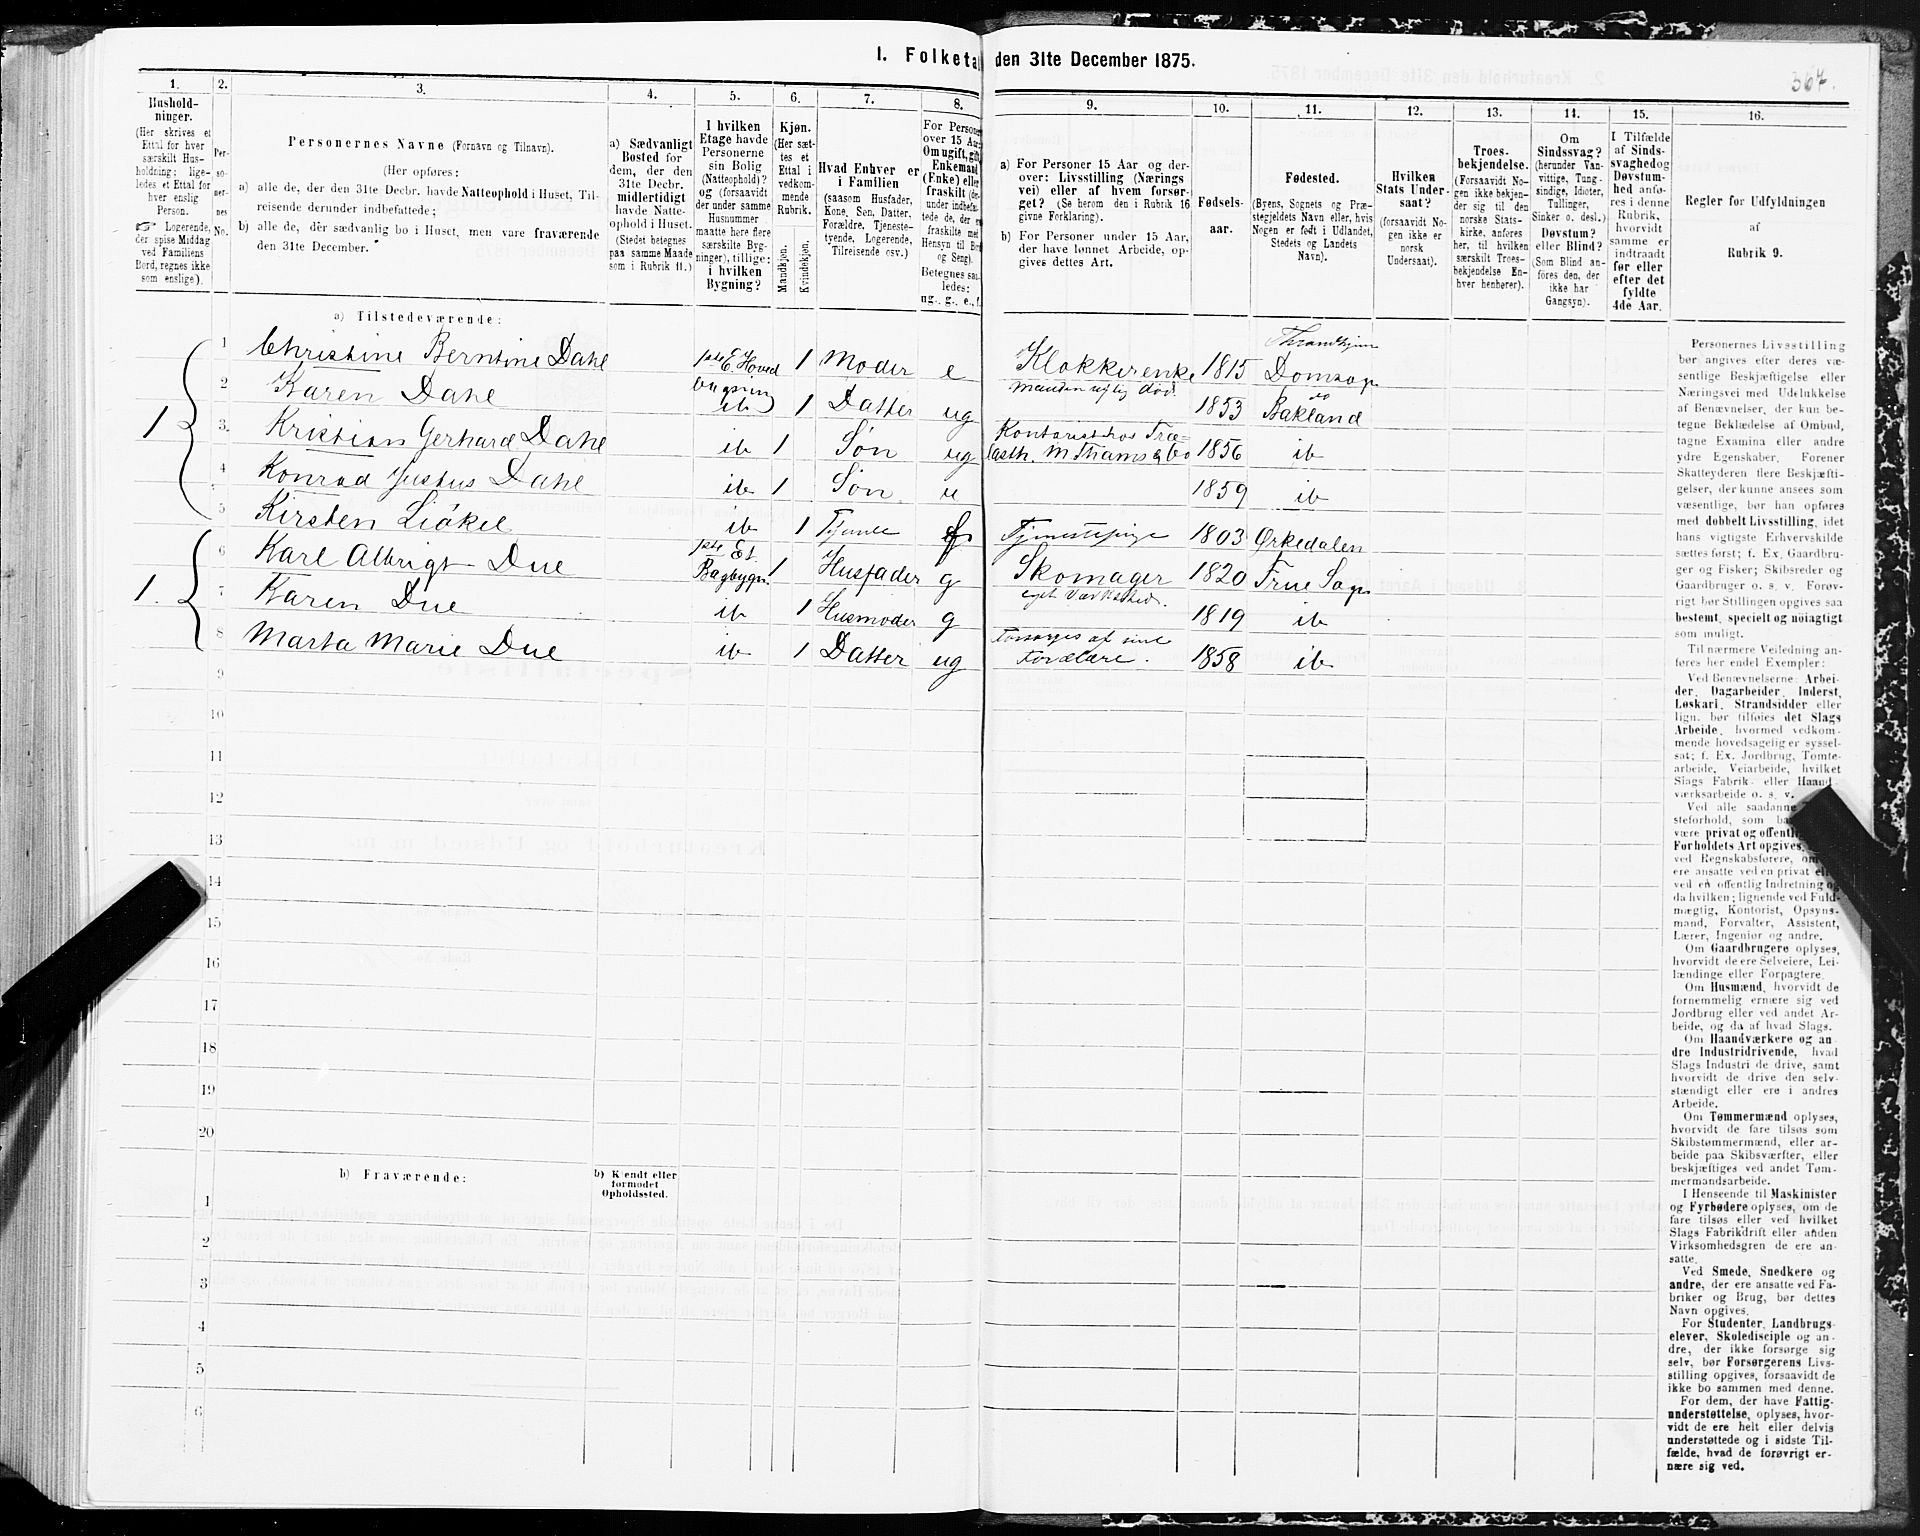 I. Folketal den 31te December 1875.
367.
1. 2. 3. 4. 5. 6. 7. 8. 9. 10. 11. 12. 13. 14. 15. 16.
Hushold-
ninger.
(Her skrives et
Ettal for hver
særskilt Hus-
holdning; lige-
ledes et Ettal for
hver enslig
Person.
Logerende,
der spise Middag
ved Familiens
Bord, regnes ikke
som enslige).
Per-
so-
ner-
nes
No.
Personernes Navne (Fornavn og Tilnavn).
(Her opføres:
a) alle de, der den 31te Decbr. havde Natteophold i Huset, Til-
reisende derunder indbefattede;
b) alle de, der sædvanlig bo i Huset, men vare fraværende
den 31te December.
a) Sædvanligt
Bosted for
dem, der den
31te Decbr.
midlertidigt
havde Natte-
ophold i Huset.
(Stedet betegnes
paa samme Maade
som i Rubrik 11.)
I hvilken
Etage havde
Personerne
sin Bolig
(Natteophold)?
og (forsaavidt
der under samme
Husnummer
maatte høre flere
særskilte Byg-
ninger), tillige:
i hvilken
Bygning?
Kjøn.
(Her sæt-
tes et
Ettal i
vedkom-
mende
Rubrik.
Mandkjøn.
Kvindekjøn.
Hvad Enhver er
i Familien
(saasom Husfader,
Kone, Søn, Datter,
Forældre, Tjeneste-
tyende, Logerende,
Tilreisende osv.)
For Personer
over 15 Aar:
Om ugift, gift,
Enkemand
(Enke) eller
fraskilt
Betegnes saa-
ledes:
ug., g., e., f.
a) For Personer 15 Aar og der-
over: Livsstilling (Nærings
vei) eller af hvem forsør-
get? (Se herom den i Rubrik 16
givne Forklaring).
b) For Personer under 15 Aar,
der have lønnet Arbeide, op-
gives dettes Art.
Fødsels-
aar.
Fødested.
(Byens, Sognets og Præ-
stegjeldets Navn eller, hvis
Nogen er født i Udlandet,
Stedets og Landets
Navn).
Hvilken
Stats Under-
saat?
(forsaavidt No-
gen ikke er
norsk
Undersaat).
Troes-
bekjendelse.
(Forsaavidt No-
gen ikke bekjen-
der sig til den
norske Stats-
kirke, anføres
her, til hvilken
særskilt Troes-
bekjendelse En-
hver henhører).
Om
Sindssvag?
(herunder Van-
vittige, Tung-
sindige, Idioter,
Tullinger,
Sinker o. desl.)
Døvstum?
eller Blind?
(Som Blind an-
føres den, der
ikke har
Gangsyn).
I Tilfælde
af Sinds-
svaghed og
Døvstum-
hed anfø-
res i denne
Rubrik,
hvorvidt
samme er
indtraadt
før eller
efter det
fyldte
4de Aar.
Regler for Udfyldningen
af
Rubrik 9.
a) Tilstedeværende:
1 Christine Berntine Dahl 1ste E. Hoved bygning 1 Moder e Klokkerenke 1815 Trondhjem Domsogn
2 Karen Dahl ib 1 Datter ug 1853 Bakland
1 3 Kristian Gerhard Dahl ib 1 Søn ug Kontorist hos Træ- lasth. M Thams & Co 1856 ib
4 Konrad Justus Dahl ib 1 Søn u 1859 ib
5 Kirsten Liökel ib 1 Tjenestepige 1803 Ørkedalen
6 Karl Albrigt Due 1ste Et Bagbygn. 1 Husfader g Skomager eget Værksted. 1820 Frue Sogn
1. 7 Karen Due ib 1 Husmoder g 1819 ib
8 Marta Marie Due ib 1 Datter ug Forsørges af sine Forældre. 1858 ib
9
10
11
12
13
14
15
16
17
18
19
20
b) Fraværende:
b) Kjendt eller
formodet
Opholdssted.
1
2
3
4
5
6
Personernes Livsstilling
bør angives efter deres væ-
sentlige Beskjæftigelse eller
Næringsvei med Udelukkelse
af Benævnelser, der kun be-
tegne Beklædelse af Ombud,
tagne Examina eller andre
ydre Egenskaber. Forener
Skatteyderen flere Beskjæfti-
gelser, der kunne ansees som
væsentlige, bør han opføres
med dobbelt Livsstilling, idet
hans vigtigste Erhvervskilde
sættes først; f. Ex. Gaardbru-
ger og Fisker; Skibsreder og
Gaardbruger o. s. v. Forøv-
rigt bør Stillingen opgives saa
bestemt, specielt og nøiagtigt
som muligt.
Til nærmere Veiledning an-
føres her endel Exempler:
Ved Benævnelserne: Arbei-
der, Dagarbeider, Inderst,
Løskari, Strandsidder eller
lign. bør tilføies det Slags
Arbeide, hvormed vedkom-
mende hovedsagelig er syssel-
sat; f. Ex. Jordbrug, Tomte-
arbeide, Veiarbeide, hvilket
Slags Fabrik- eller Haand-
værksarbeide o. s. v.
Ved alle saadanne
steforhold, som
være privat og offentlig
Forholdets Art opgives,
ved Regnskabsførere, om
ere ansatte ved en privat
ved en offentlig Indretning og
da hvilken; lignende ved Fuld-
mægtig, Kontorist, Opsyns-
mand, Forvalter, Assistent,
Lærer, Ingeniør og andre.
Om Gaardbrugere oplyses,
hvorvidt de ere Selveiere, Lei-
lændinge eller Forpagtere.
Om Husmænd, hvorvidt de
fornemmelig ernære sig ved
Jordbrug eller ved andet Ar-
beide, og da af hvad Slags.
Om Haandværkere og an-
dre Industridrivende, hvad
Slags Industri de drive, samt
hvorvidt de drive den selv-
stændigt eller ere i andres
Arbeide.
Om Tømmermænd oplyses,
hvorvidt de fare tilsøs som
Skibstømmermænd, eller ar-
beide paa Skibsværfter, eller
beskjæftiges ved andet Tøm-
mermandsarbeide.
I Henseende til Maskinister
og Fyrbødere oplyses, om de
fare tilsøs eller ved hvilket
Slags Fabrikdrift eller anden
Virksomhedsgren de ere an-
satte.
Ved Smede, Snedkere og
andre, der ere ansatte ved Fa-
briker og Brug, bør dettes
Navn opgives.
For Studenter, Landbrugs-
elever, Skoledisciple og an-
dre, der ikke forsørge sig
selv, bør Forsørgerens Livs-
stilling opgives, forsaavidt de
ikke bo sammen med denne.
For dem, der have Fattig-
understøttelse, oplyses, hvor-
vidt de ere helt eller delvis
understøttede og i sidste Til-
fælde, hvad de forøvrigt er-
nære sig ved.